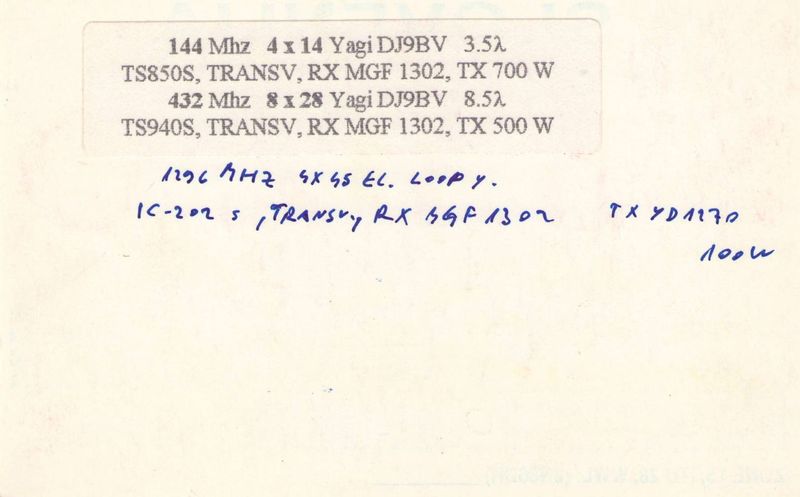 144 Mhz 4 x 14 Yagi DJ9BV 3.5λ
TS850S, TRANSV, RX MGF 1302, TX 700 W
432 Mhz 8 x 28 Yagi DJ9BV 8.5λ
TS940S, TRANSV, RX MGF 1302, TX 500 W
1296 MHZ 4X45 EL. LOOP Y.
IC-202 S, TRANSV, RX MGF 1302 TX YD1270
100W